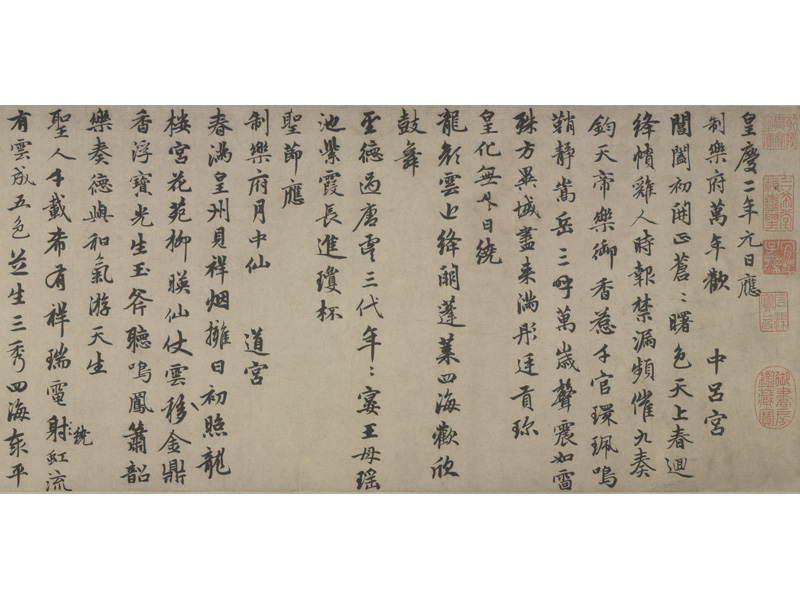 皇慶二年元日應
制樂府萬年歡　中呂宮
閶闔初開正蒼〻曙色天上春迴
絳幘雞人時報禁漏頻催九奏
鈞天帝樂御香惹千官環珮鳴
鞘靜嵩岳三呼萬歲聲震如雷
殊方異域盡来滿彤廷貢珎
皇化無外日繞
龍顏雲近絳闕蓬萊四海歡欣
鼓舞
聖德過唐虞三代年〻宴王母瑤
池紫霞長進瓊杯
聖節應
制樂府月中仙　道宮
春滿皇州見祥烟擁日初照龍
樓宮花苑柳暎仙仗雲移金鼎
香浮寶光生玉斧聽鳴鳳簫韶
樂奏德與和氣游天生
聖人千載希有祥瑞電繞射虹流
有雲成五色芝生三秀四海東平